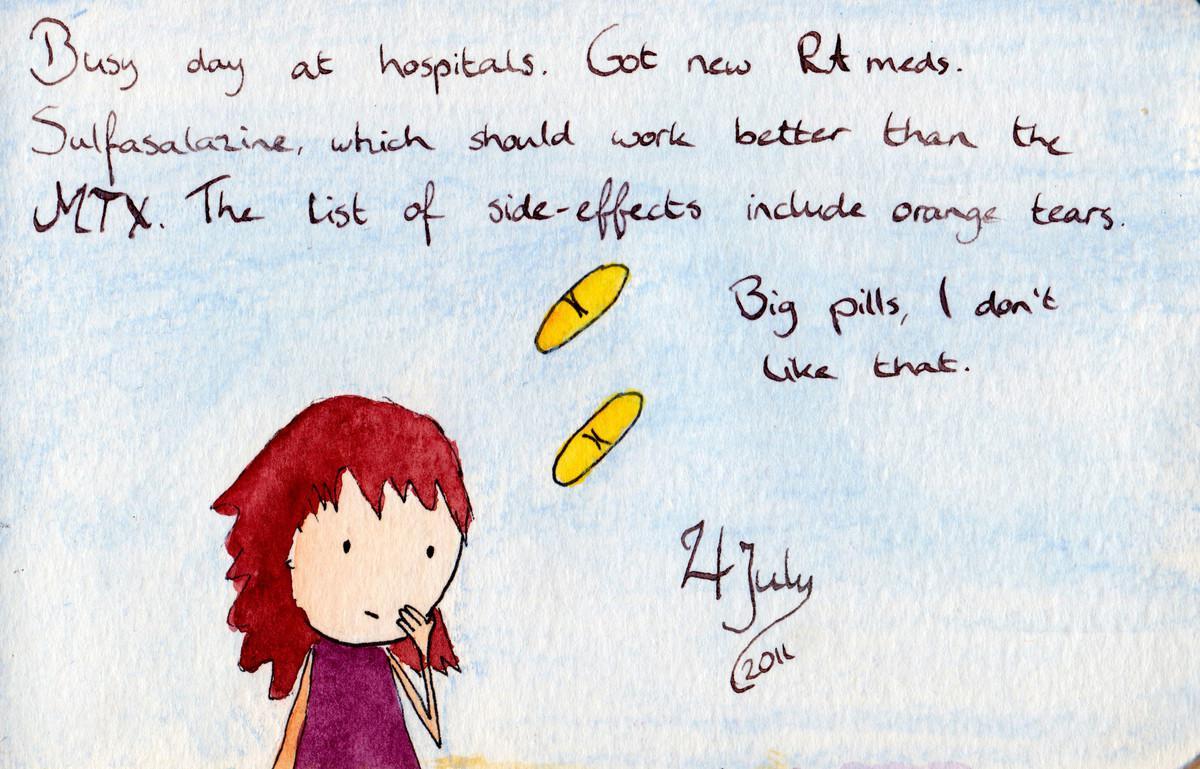 Busy day at hospitals. Got new RA meds.
Sulfasalazine, which should work better than the
MTX. The list of side-effects include orange tears.
Big pills, I don't
like that.
4 July
2011